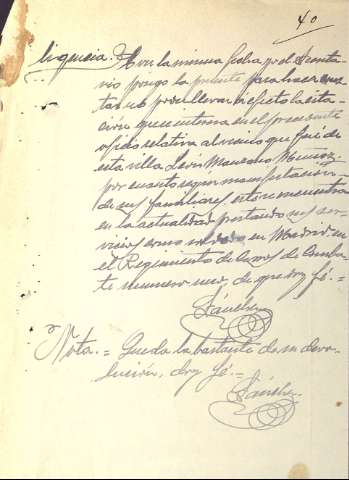 40
ligencia.- Con la misma fecha yo el Secreta
rio pongo la presente para hacer cons
tar no poder llevar a efecto la cita
ción que interesa en el presente
oficio relativa al vecino que fué de
esta villa León Manzano Muñoz
por cuanto segun manifestacion
de sus familiares, este se encuentra
en la actualidad prestando sus ser
vicios como soldado en Madrid en
el Regimiento de Carros de Comba
te numero uno, de que doy fé.=
Sánchez
Nota.= Queda la bastante de su devo-
lucion, doy fé.=
Sánchez